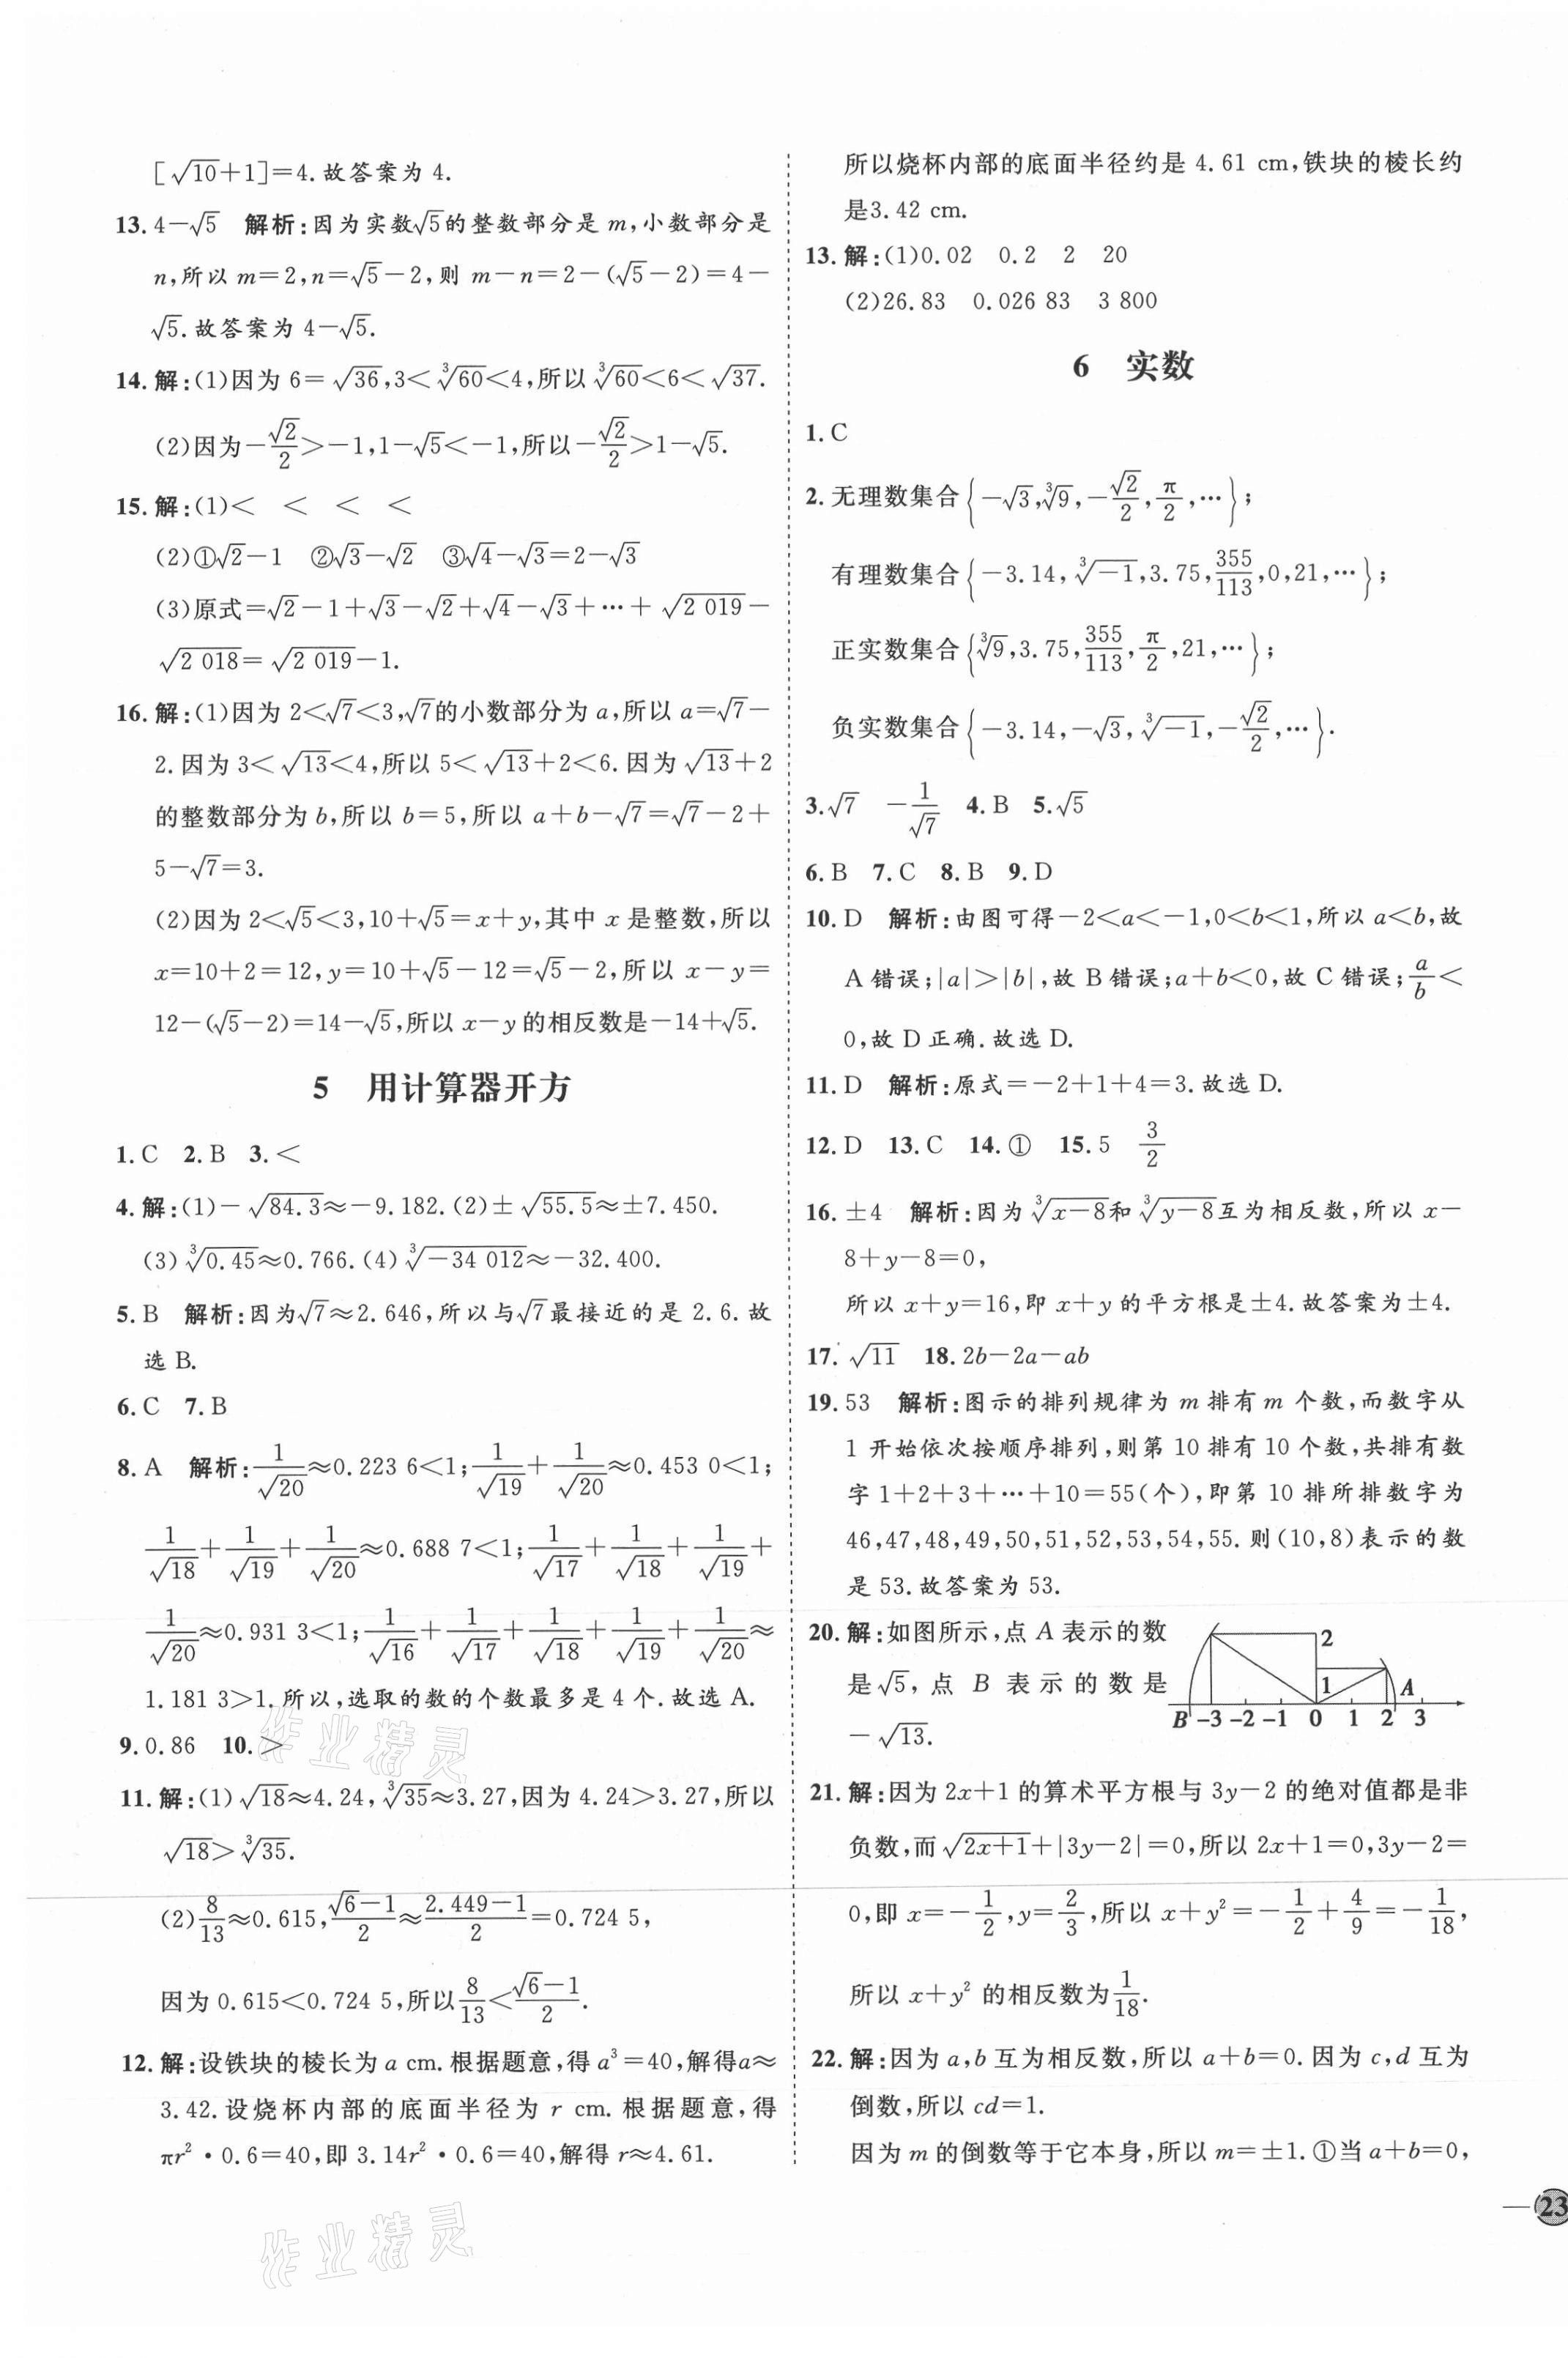 [√10+1]=4.故答案为 4.
13. 4-√5 解析:因为实数√5的整数部分是 m,小数部分是
n,所以 m=2,n=√5-2,则 m-n=2-(√5-2)=4-
√5.故答案为 4-√5.
14. 解:(1)因为 6=√36,3<∛60<4,所以∛60<6<√37.
(2)因为-√2/2>-1,1-√5<-1,所以-√2/2>1-√5.
15. 解:(1)< < < <
(2)①√2-1 ②√3-√2 ③√4-√3=2-√3
(3)原式=√2-1+√3-√2+√4-√3+…+√2 019-
√2 018=√2 019-1.
16. 解:(1)因为 2<√7<3,√7的小数部分为 a,所以 a=√7-
2.因为 3<√13<4,所以 5<√13+2<6.因为√13+2
的整数部分为 b,所以 b=5,所以 a+b-√7=√7-2+
5-√7=3.
(2)因为 2<√5<3,10+√5=x+y,其中 x 是整数,所以
x=10+2=12,y=10+√5-12=√5-2,所以 x-y=
12-(√5-2)=14-√5,所以 x-y 的相反数是-14+√5.
5 用计算器开方
1. C 2. B 3. <
4. 解:(1)-√84.3≈-9.182.(2)±√55.5≈±7.450.
(3)∛0.45≈0.766.(4)∛-34 012≈-32.400.
5. B 解析:因为√7≈2.646,所以与√7最接近的是 2.6.故
选 B.
6. C 7. B
8. A 解析:1/√20≈0.223 6<1;1/√19+1/√20≈0.453 0<1;
1/√18+1/√19+1/√20≈0.688 7<1;1/√17+1/√18+1/√19+
1/√20≈0.931 3<1;1/√16+1/√17+1/√18+1/√19+1/√20≈
1.181 3>1.所以,选取的数的个数最多是 4 个.故选 A.
9. 0.86 10. >
11. 解:(1)√18≈4.24,∛35≈3.27,因为 4.24>3.27,所以
√18>∛35.
(2)8/13≈0.615,(√6-1)/2≈(2.449-1)/2=0.724 5,
因为 0.615<0.724 5,所以8/13<(√6-1)/2.
12. 解:设铁块的棱长为 a cm.根据题意,得 a³=40,解得a≈
3.42.设烧杯内部的底面半径为 r cm.根据题意,得
πr²·0.6=40,即 3.14r²·0.6=40,解得 r≈4.61.
所以烧杯内部的底面半径约是 4.61 cm,铁块的棱长约
是3.42 cm.
13. 解:(1)0.02 0.2 2 20
(2)26.83 0.026 83 3 800
6 实数
1. C
2. 无理数集合{-√3,∛9,-√2/2,π/2,…};
有理数集合{-3.14,∛-1,3.75,355/113,0,21,…};
正实数集合{∛9,3.75,355/113,π/2,21,…};
负实数集合{-3.14,-√3,∛-1,-√2/2,…}.
3. √7 -1/√7 4. B 5. √5
6. B 7. C 8. B 9. D
10. D 解析:由图可得-2<a<-1,0<b<1,所以 a<b,故
A 错误;|a|>|b|,故 B 错误;a+b<0,故 C 错误;a/b<
0,故 D 正确.故选 D.
11. D 解析:原式=-2+1+4=3.故选 D.
12. D 13. C 14. ① 15. 5 3/2
16. ±4 解析:因为∛x-8和∛y-8互为相反数,所以 x-
8+y-8=0,
所以 x+y=16,即 x+y 的平方根是±4.故答案为±4.
17. √11 18. 2b-2a-ab
19. 53 解析:图示的排列规律为 m 排有 m 个数,而数字从
1 开始依次按顺序排列,则第 10 排有 10 个数,共排有数
字 1+2+3+…+10=55(个),即第 10 排所排数字为
46,47,48,49,50,51,52,53,54,55.则(10,8)表示的数
是 53.故答案为 53.
20. 解:如图所示,点 A 表示的数
是√5,点 B 表示的数是
-√13.
2
1 A
B -3 -2 -1 0 1 2 3
21. 解:因为 2x+1 的算术平方根与 3y-2 的绝对值都是非
负数,而√2x+1+|3y-2|=0,所以 2x+1=0,3y-2=
0,即 x=-1/2,y=2/3,所以 x+y²=-1/2+4/9=-1/18,
所以 x+y² 的相反数为1/18.
22. 解:因为 a,b 互为相反数,所以 a+b=0.因为 c,d 互为
倒数,所以 cd=1.
因为 m 的倒数等于它本身,所以 m=±1.①当 a+b=0,
— 23
作业精灵
作业精灵